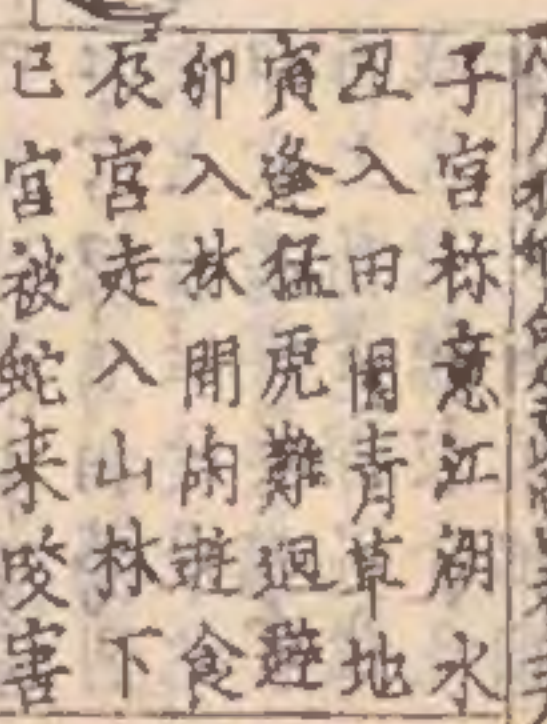 子宮称意江湖水
丑入田園青草地
寅逢猛虎難迴避
卯入林間内遊食
辰宮走入山林下
巳宮被蛇来咬害